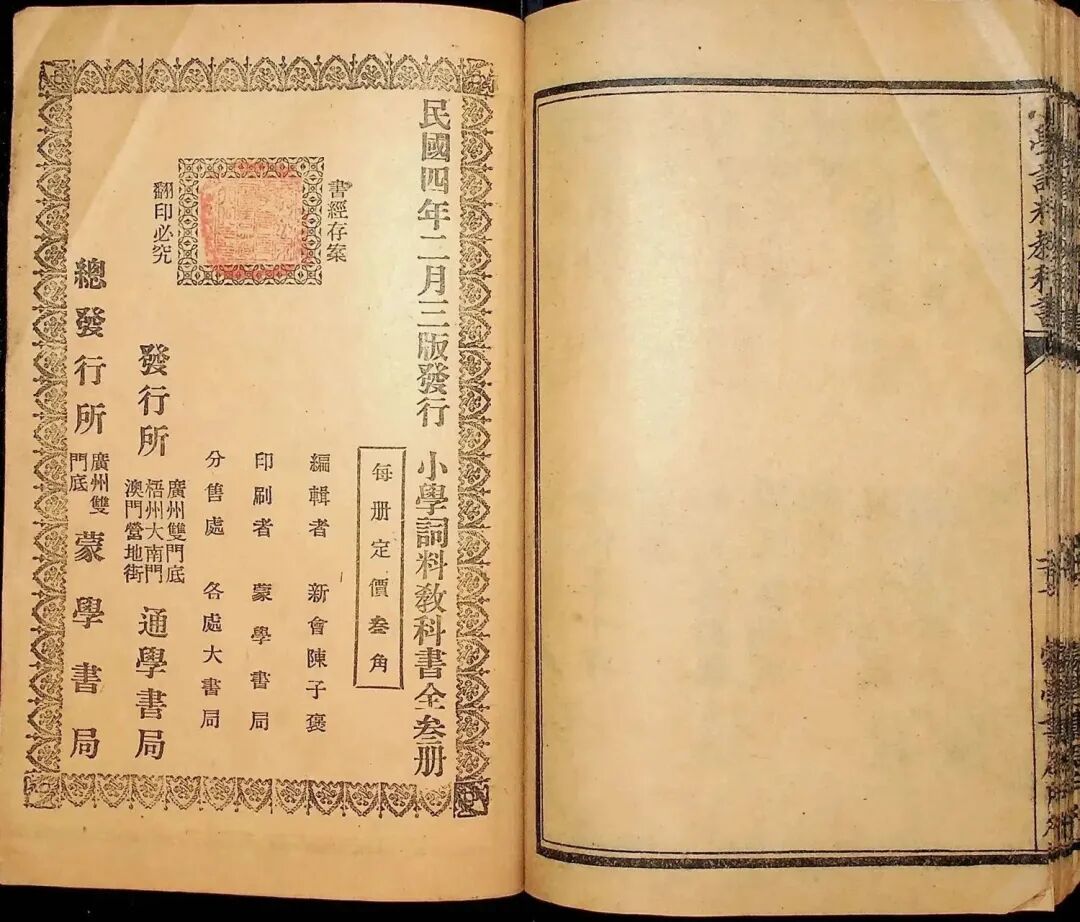 民國四年二月三版發行 小學詞料教科書全叁册
每册定價叁角
書經存案
翻印必究
編輯者 新會陳子褒
印刷者 蒙學書局
分售處 各處大書局
發行所 廣州雙門底 梧州大南門 澳門營地街 通學書局
總發行所 廣州雙門底 蒙學書局
小學詞料教科書